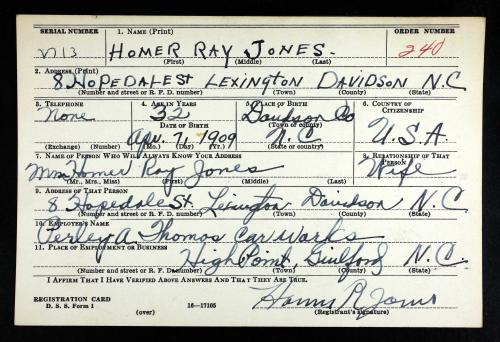 SERIAL NUMBER 1. NAME (Print) ORDER NUMBER
N 13 HOMER RAY JONES. 240
(First) (Middle) (Last)
2. ADDRESS (Print)
8 HOPEDALE ST LEXINGTON DAVIDSON N.C
(Number and street or R. F. D. number) (Town) (County) (State)
3. TELEPHONE 4. AGE IN YEARS 5. PLACE OF BIRTH 6. COUNTRY OF CITIZENSHIP
None 32 Davidson Co
DATE OF BIRTH (Town or county)
Apr. 7, 1909 N.C U.S.A.
(Exchange) (Number) (Mo.) (Day) (Yr.) (State or country)
7. NAME OF PERSON WHO WILL ALWAYS KNOW YOUR ADDRESS 8. RELATIONSHIP OF THAT PERSON
Mrs Homer Ray Jones Wife
(Mr., Mrs., Miss) (First) (Middle) (Last)
9. ADDRESS OF THAT PERSON
8 Hopedale St. Lexington Davidson N.C
(Number and street or R. F. D. number) (Town) (County) (State)
10. EMPLOYER'S NAME
Perley A. Thomas Car Works
11. PLACE OF EMPLOYMENT OR BUSINESS
High Point Guilford N.C.
(Number and street or R. F. D. number) (Town) (County) (State)
I AFFIRM THAT I HAVE VERIFIED ABOVE ANSWERS AND THAT THEY ARE TRUE.
REGISTRATION CARD Homer R Jones
D. S. S. Form 1 (over) 16—17105 (Registrant's signature)